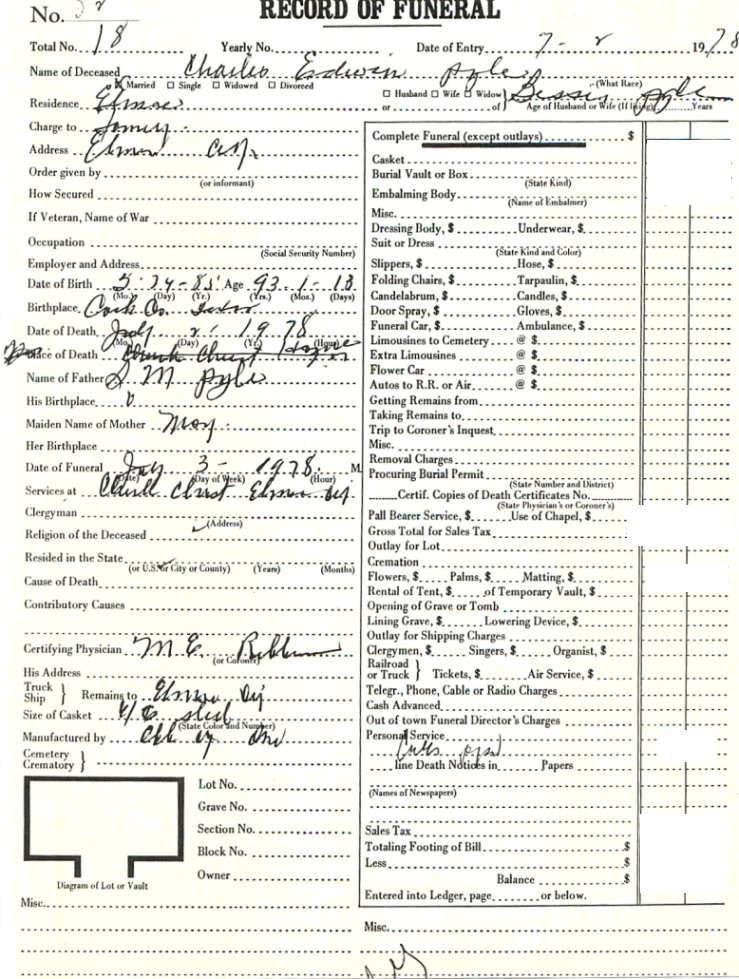 RECORD OF FUNERAL
No.
Total No. 18 Yearly No. Date of Entry 7 - 2 1978
Name of Deceased Charles Edwin Pyle (What Race)
Married □ Single □ Widowed □ Divorced □ Husband □ Wife □ Widow Bessie Pyle
Residence or of Age of Husband or Wife (If living) Years
Charge to Family
Address
Order given by
(or informant)
How Secured
If Veteran, Name of War
Occupation
(Social Security Number)
Employer and Address
Date of Birth 5 - 24 - 85 Age 93 - 1 - 13
(Mo.) (Day) (Yr.) (Yrs.) (Mos.) (Days)
Birthplace Cook Co. Texas
Date of Death July 2 - 1978
(Mo.) (Day) (Yr.) (Hour)
Place of Death Church Christ
Name of Father S M Pyle
His Birthplace
Maiden Name of Mother May
Her Birthplace
Date of Funeral July 3 - 1978 M.
(Date) (Day of Week) (Hour)
Services at Church Christ Elmer
Clergyman
(Address)
Religion of the Deceased
Resided in the State
(or U.S. or City or County) (Years) (Months)
Cause of Death
Contributory Causes
Certifying Physician M. E.
(or Coroner)
His Address
Truck
Ship } Remains to
Size of Casket
(State Color and Number)
Manufactured by
Cemetery
Crematory }
Lot No.
Grave No.
Section No.
Block No.
Owner
Diagram of Lot or Vault
Misc.
Complete Funeral (except outlays) $
Casket
Burial Vault or Box
(State Kind)
Embalming Body
(Name of Embalmer)
Misc.
Dressing Body, $ Underwear, $
Suit or Dress
(State Kind and Color)
Slippers, $ Hose, $
Folding Chairs, $ Tarpaulin, $
Candelabrum, $ Candles, $
Door Spray, $ Gloves, $
Funeral Car, $ Ambulance, $
Limousines to Cemetery @ $
Extra Limousines @ $
Flower Car @ $
Autos to R.R. or Air @ $
Getting Remains from
Taking Remains to
Trip to Coroner's Inquest
Misc.
Removal Charges
Procuring Burial Permit
(State Number and District)
Certif. Copies of Death Certificates No.
(State Physician's or Coroner's)
Pall Bearer Service, $ Use of Chapel, $
Gross Total for Sales Tax
Outlay for Lot
Cremation
Flowers, $ Palms, $ Matting, $
Rental of Tent, $ of Temporary Vault, $
Opening of Grave or Tomb
Lining Grave, $ Lowering Device, $
Outlay for Shipping Charges
Clergymen, $ Singers, $ Organist, $
Railroad
or Truck } Tickets, $ Air Service, $
Telegr., Phone, Cable or Radio Charges
Cash Advanced
Out of town Funeral Director's Charges
Personal Service
line Death Notices in Papers
(Names of Newspapers)
Sales Tax
Totaling Footing of Bill $
Less $
Balance $
Entered into Ledger, page or below.
Misc.